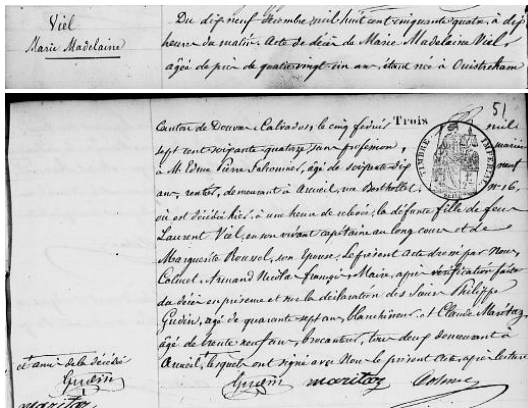 Viel
Marie Madelaine
Du dix neuf décembre mil huit cent cinquante quatre, à dix
heure du matin. Acte de décès de Marie Madelaine Viel
agée de près de quatre vingt un ans étant née à Ouistreham
51
Canton de Douvres Calvados, le cinq février Trois mil
sept cent soixante quatorze sans profession,
à Mr Edme Pierre âgé de soixante dix
ans, rentier, demeurant à Arcueil, rue Berthollet, no 16,
où est décédée hier, à une heure de relevée, la défunte fille de feu
Laurent Viel, en son vivant capitaine au long cours et de
Marguerite son épouse. Le présent acte dressé par Nous
Armand Nicolas françois, Maire, après vérification faite
du décès en personne et sur la déclaration des Sieurs Philippe
agé de quarante sept ans, blanchisseur, et Claude
agé de trente neuf ans, brocanteur, tous deux demeurant à
Arceuil, lesquels ont signé avec Nous le présent acte, après lecture
et amis de la décédée
TIMBRE IMPERIAL